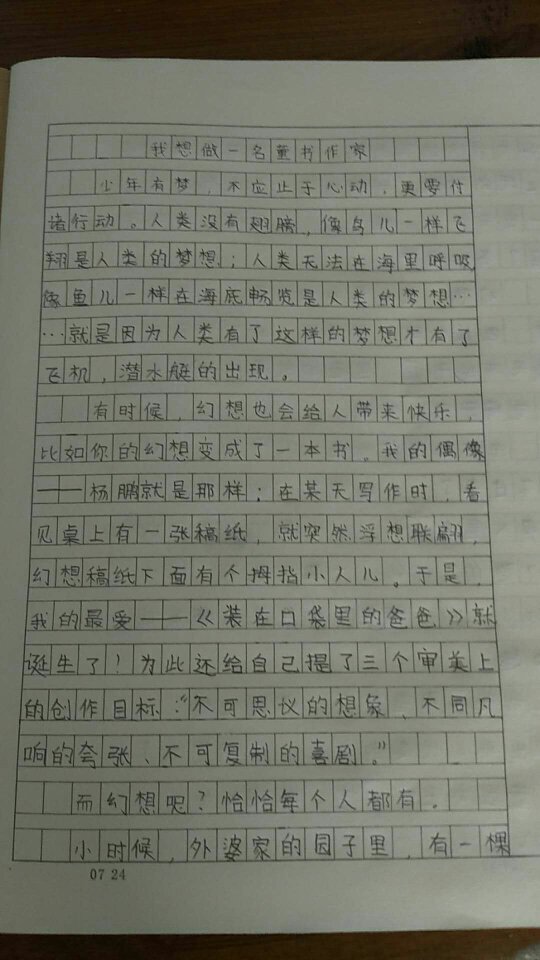 我想做一名童书作家
少年有梦，不应止于心动，更要付
诸行动。人类没有翅膀，像鸟儿一样飞
翔是人类的梦想；人类无法在海里呼吸，
像鱼儿一样在海底畅览是人类的梦想…
…就是因为人类有了这样的梦想才有了
飞机，潜水艇的出现。
有时候，幻想也会给人带来快乐，
比如你的幻想变成了一本书。我的偶像
——杨鹏就是那样；在某天写作时，看
见桌上有一张稿纸，就突然浮想联翩，
幻想稿纸下面有个拇指小人儿。于是，
我的最爱——《装在口袋里的爸爸》就
诞生了！为此还给自己提了三个审美上
的创作目标：“不可思议的想象、不同凡
响的夸张、不可复制的喜剧。”
而幻想呢？恰恰每个人都有。
小时候，外婆家的园子里，有一棵
07 24